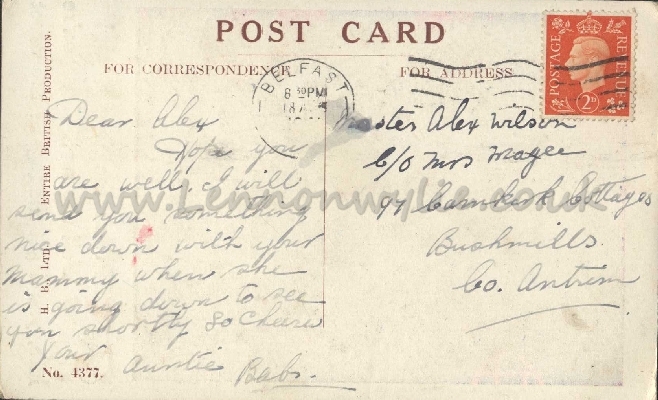 POST CARD
FOR CORRESPONDENCE
FOR ADDRESS
BELFAST
8 30 PM
POSTAGE REVENUE
2D
Dear Alex
Hope you
are well. I will
send you something
nice down with your
Mammy when she
is going down to see
you shortly so cheerio
Your Auntie Babs.
Master Alex Wilson
C/O Mrs Magee
97 Carnkirk Cottages
Bushmills.
Co. Antrim
H. B., LTD.
ENTIRE BRITISH PRODUCTION.
No. 4377.
www.Lennonwylie.co.uk